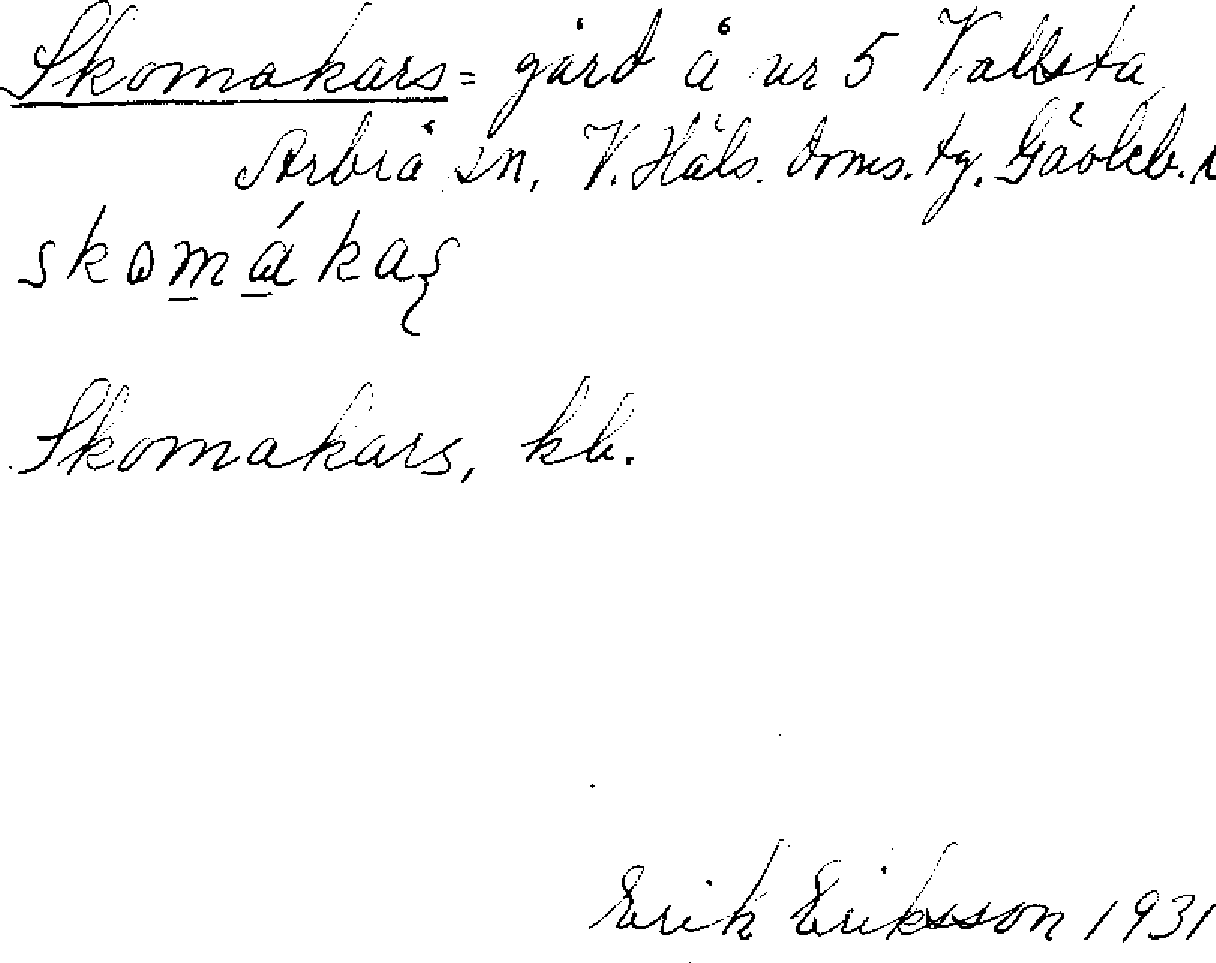 Skomakars = gård å nr 5 Vallsta
Arbrå sn, V. Häls. doms. tg. Gävleb.
skomákaʂ
Skomakars, kb.
Erik Eriksson 1931